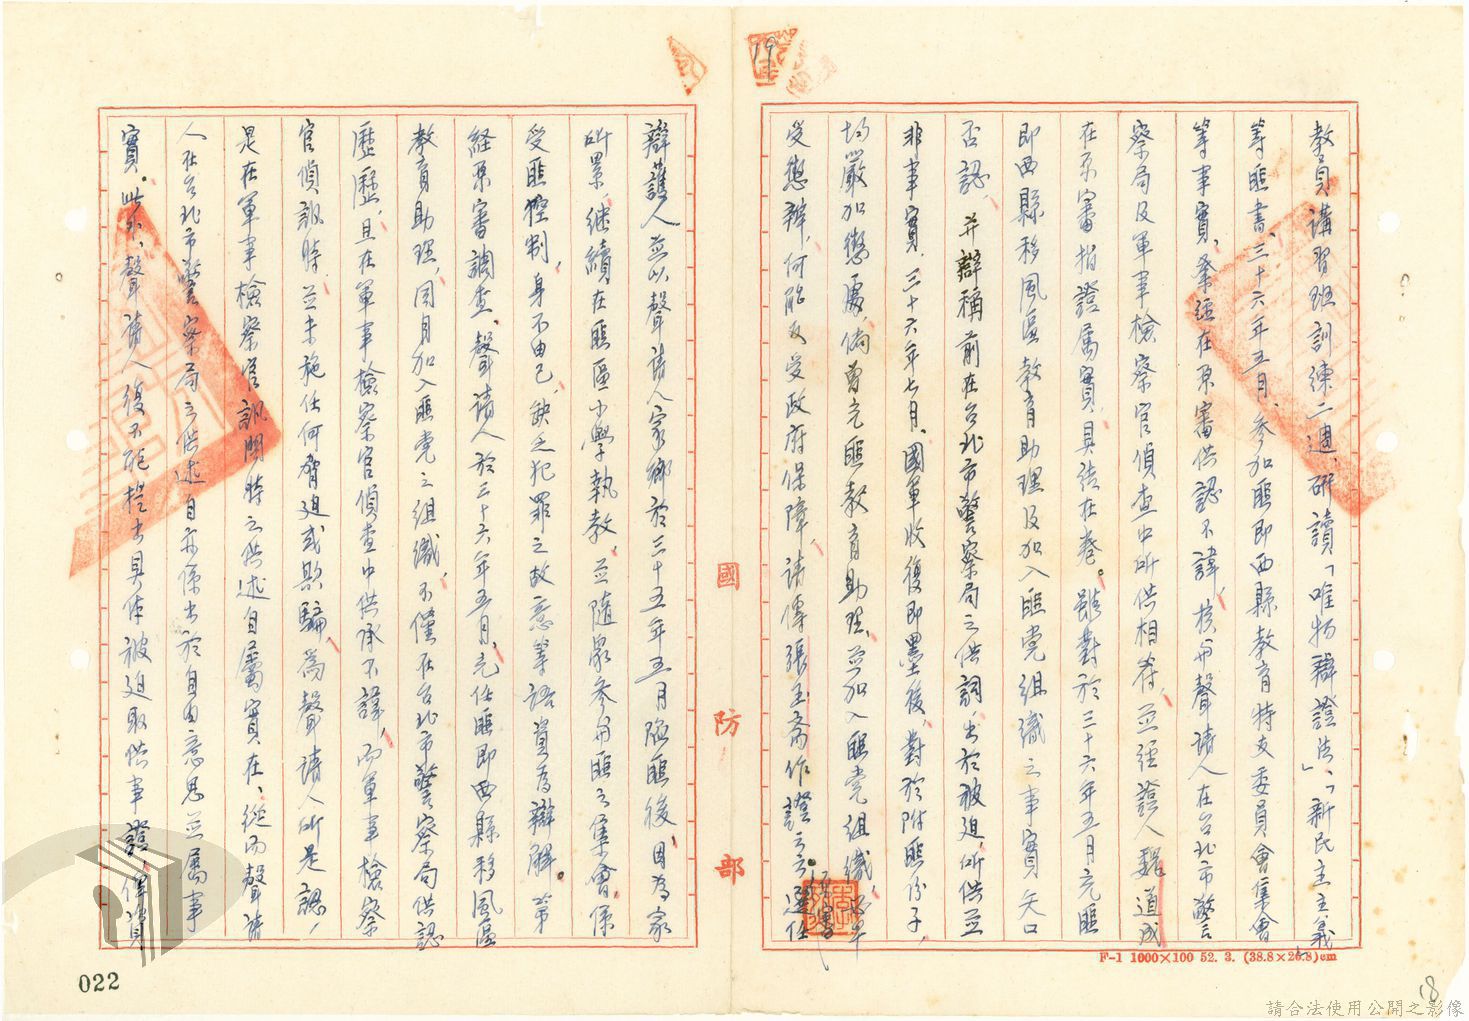 教員講習班訓練二週，研讀「唯物辯證法」「新民主主義」
等匪書、三十六年五月、參加匪即西縣教育特支委員會集會
等事實，業經在原審供認不諱，核與聲請人在台北市警
察局及軍事檢察官偵查中所供相符，並經證人魏道成
在原審指證屬實，具結在卷。雖對於三十六年五月充匪
即西縣移風區教育助理及加入匪黨組織之事實矢口
否認，並辯稱前在台北市警察局之供詞出於被迫，所供並
非事實，三十六年七月，國軍收復即墨後，對於附匪份子，
均嚴加懲處，倘曾充匪教育助理，並加入匪黨組織，
受懲辦，何能反受政府保障，請傳張玉斋作證云云。選任
辯護人並以聲請人家鄉於三十五年五月陷匪後，因為家
所累，繼續在匪區小學執教，並隨眾參與匪之集會，係
受匪控制，身不由己，缺乏犯罪之故意等語資為辯解。第
經原審調查，聲請人於三十六年五月，充任匪即西縣移風區
教育助理，同月加入匪党之組織，不僅在台北市警察局供認
歷歷，且在軍事檢察官偵查中供承不諱，而軍事檢察
官偵訊時，並未施任何脅迫或欺騙，為聲請人所是認，
是在軍事檢察官訊問時之供述自屬實在，從而聲請
人在台北市警察局之供述自亦係出於自由意思並屬事
實。此外，聲請人復不能提出具体被迫取供事證，俾資
國防部
F-1 1000×100 52. 3. (38.8×26.8)cm
022
18
19
請合法使用公開之影像